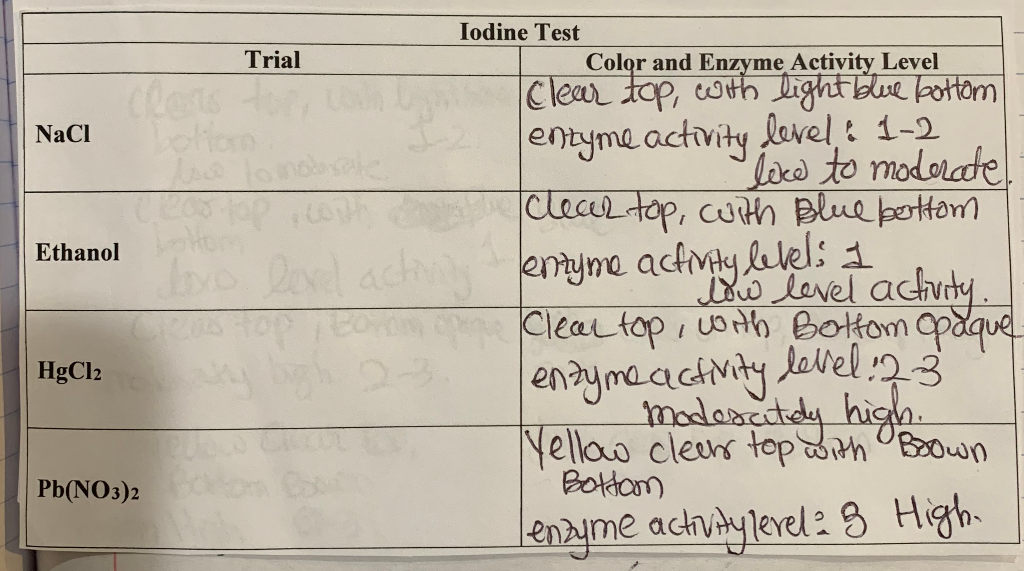 Iodine Test
Trial
Color and Enzyme Activity Level
NaCl
Clear top, with light blue bottom
enzyme activity level : 1-2
low to moderate.
Ethanol
Clear top, with Blue bottom
enzyme activity level : 1
low level activity.
HgCl2
Clear top, with Bottom opaque
enzyme activity level : 2-3
moderately high.
Pb(NO3)2
Yellow clear top with Brown
Bottom
enzyme activity level : 3 High.